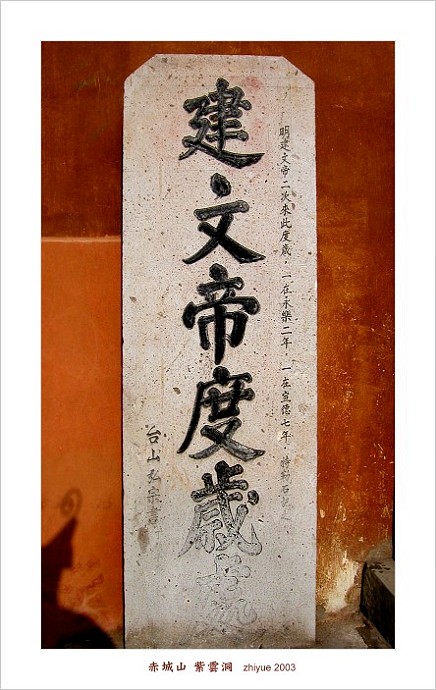 明建文帝二次來此度歲，一在永樂二年，一在宣德七年，特勒石記
建文帝度歲
台山 宗書
赤城山 紫雲洞 zhiyue 2003